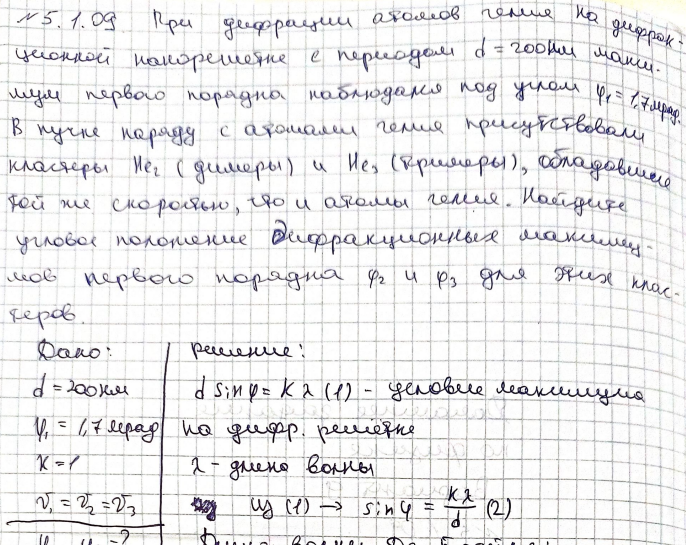 №5.1.09 При дифракции атомов гелия на дифрак-
ционной нанорешетке с периодом d = 200нм макси-
мум первого порядка наблюдался под углом φ₁ = 1,7мрад.
В пучке наряду с атомами гелия присутствовали
кластеры He₂ (димеры) и He₃ (тримеры), обладавшие
той же скоростью, что и атомы гелия. Найдите
угловое положение дифракционных максиму-
мов первого порядка φ₂ и φ₃ для этих клас-
теров.
Дано:
d = 200нм
φ₁ = 1,7мрад
K = 1
v₁ = v₂ = v₃
Решение:
d sinφ = Kλ (1) - условие максимума
на дифр. решетке
λ - длина волны
Из (1) → sinφ = Kλ/d (2)